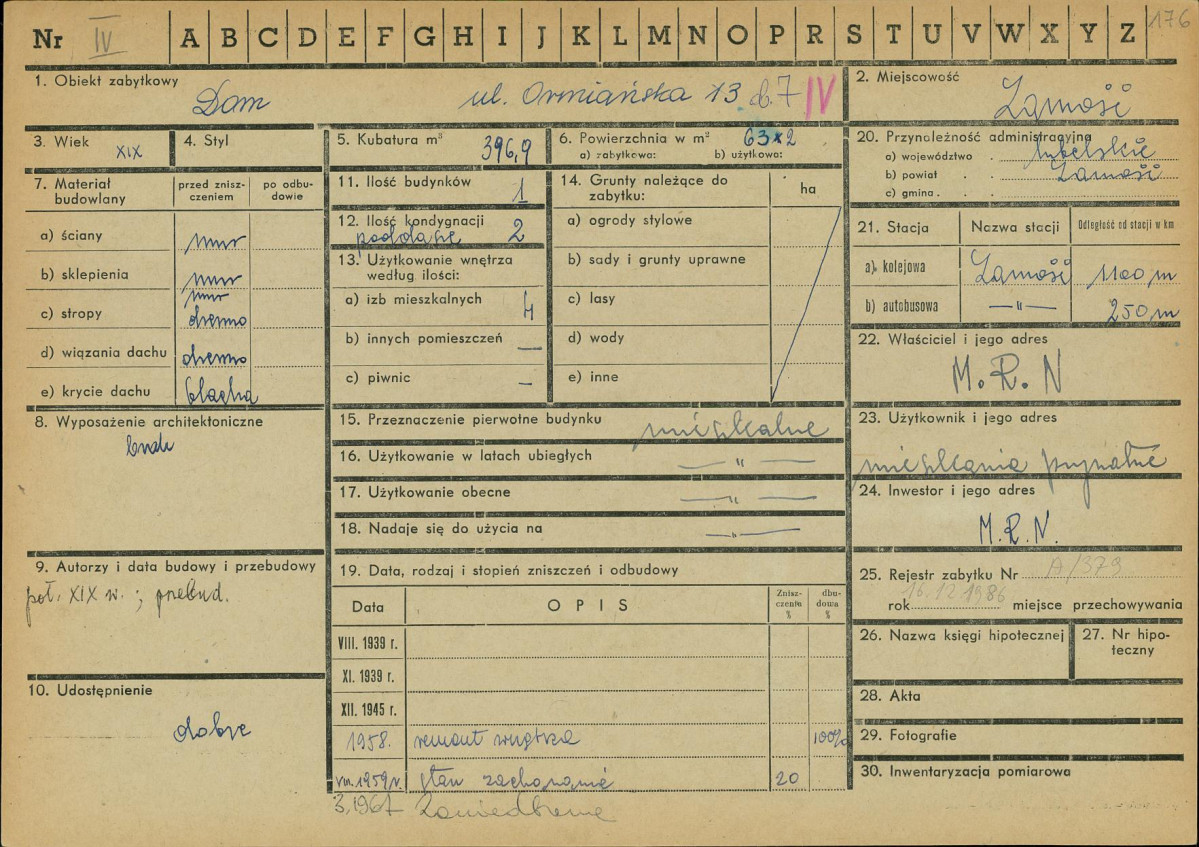 Nr IV A B C D E F G H I J K L M N O P R S T U V W X Y Z 176
1. Obiekt zabytkowy
Dom ul. Ormiańska 13 d. 7 IV
2. Miejscowość
Zamość
3. Wiek
XIX
4. Styl
5. Kubatura m³ 396,9
6. Powierzchnia w m² 63x2
a) zabytkowa: b) użytkowa:
20. Przynależność administracyjna
a) województwo . lubelskie
b) powiat . . Zamość
c) gmina . . .
7. Materiał budowlany
przed znisz-
czeniem
po odbu-
dowie
a) ściany mur
b) sklepienia mur
mur
c) stropy drewno
d) wiązania dachu drewno
e) krycie dachu blacha
11. Ilość budynków 1
12. Ilość kondygnacji 2
poddasze
13. Użytkowanie wnętrza
według ilości:
a) izb mieszkalnych 4
b) innych pomieszczeń —
c) piwnic —
14. Grunty należące do
zabytku:
ha
a) ogrody stylowe
b) sady i grunty uprawne
c) lasy
d) wody
e) inne
21. Stacja Nazwa stacji Odległość od stacji w km
a) kolejowa Zamość 1100 m
b) autobusowa —"— 250 m
22. Właściciel i jego adres
M. R. N
8. Wyposażenie architektoniczne
brak
15. Przeznaczenie pierwotne budynku mieszkalne
16. Użytkowanie w latach ubiegłych — " —
17. Użytkowanie obecne — " —
18. Nadaje się do użycia na — " —
23. Użytkownik i jego adres
mieszkania prywatne
24. Inwestor i jego adres
M.R.N.
9. Autorzy i data budowy i przebudowy
poł. XIX w. ; przebud.
10. Udostępnienie
dobre
19. Data, rodzaj i stopień zniszczeń i odbudowy
Data OPIS
Znisz-
czenia
%
dbu-
dowa
%
VIII. 1939 r.
XI. 1939 r.
XII. 1945 r.
1958. remont wnętrza 100%
VIII.1959 r. stan zachowania 20
3.1967 Zaniedbane
25. Rejestr zabytku Nr A/379
16.12.1986
rok miejsce przechowywania
26. Nazwa księgi hipotecznej
27. Nr hipo-
teczny
28. Akta
29. Fotografie
30. Inwentaryzacja pomiarowa